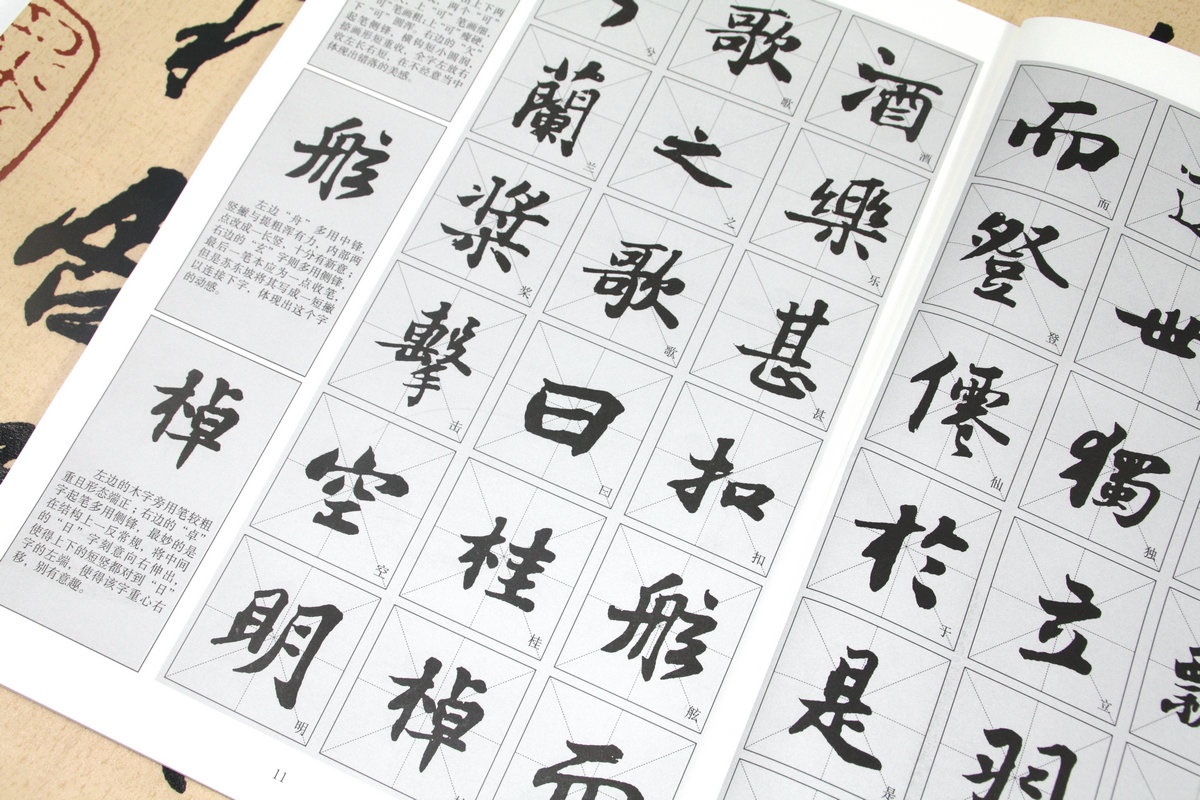 下“可”圆浑,上“可”瘦硬。
起笔侧锋,横钩短小圆润,
捺画形短重收,全字左放右
收左长右短,在不经意当中
体现出错落的美感。
舷
左边“舟”多用中锋,
竖撇与提粗浑有力,内部两
点改成一长竖,十分有新意;
右边的“玄”字则多用侧锋,
最后一笔本应为一点收笔,
但是苏东坡将其写成一短撇
以连接下字,体现出这个字
的动感。
棹
左边的木字旁用笔较粗
重且形态端正;右边的“卓”
字起笔多用侧锋,最妙的是
在结构上一反常规,将中间
的“日”字刻意向右伸出,
使得上下的短竖都对到“日”
字的左端,使得该字重心右
移,别有意趣。
酒 酒
樂 乐
甚 甚
扣 扣
舷 舷
而
歌 歌
之 之
歌 歌
曰 曰
桂 桂
棹
兮 兮
蘭 兰
槳 桨
擊 击
空 空
明 明
11
世
獨 独
立 立
羽
而 而
登 登
僊 仙
於 于
是 是